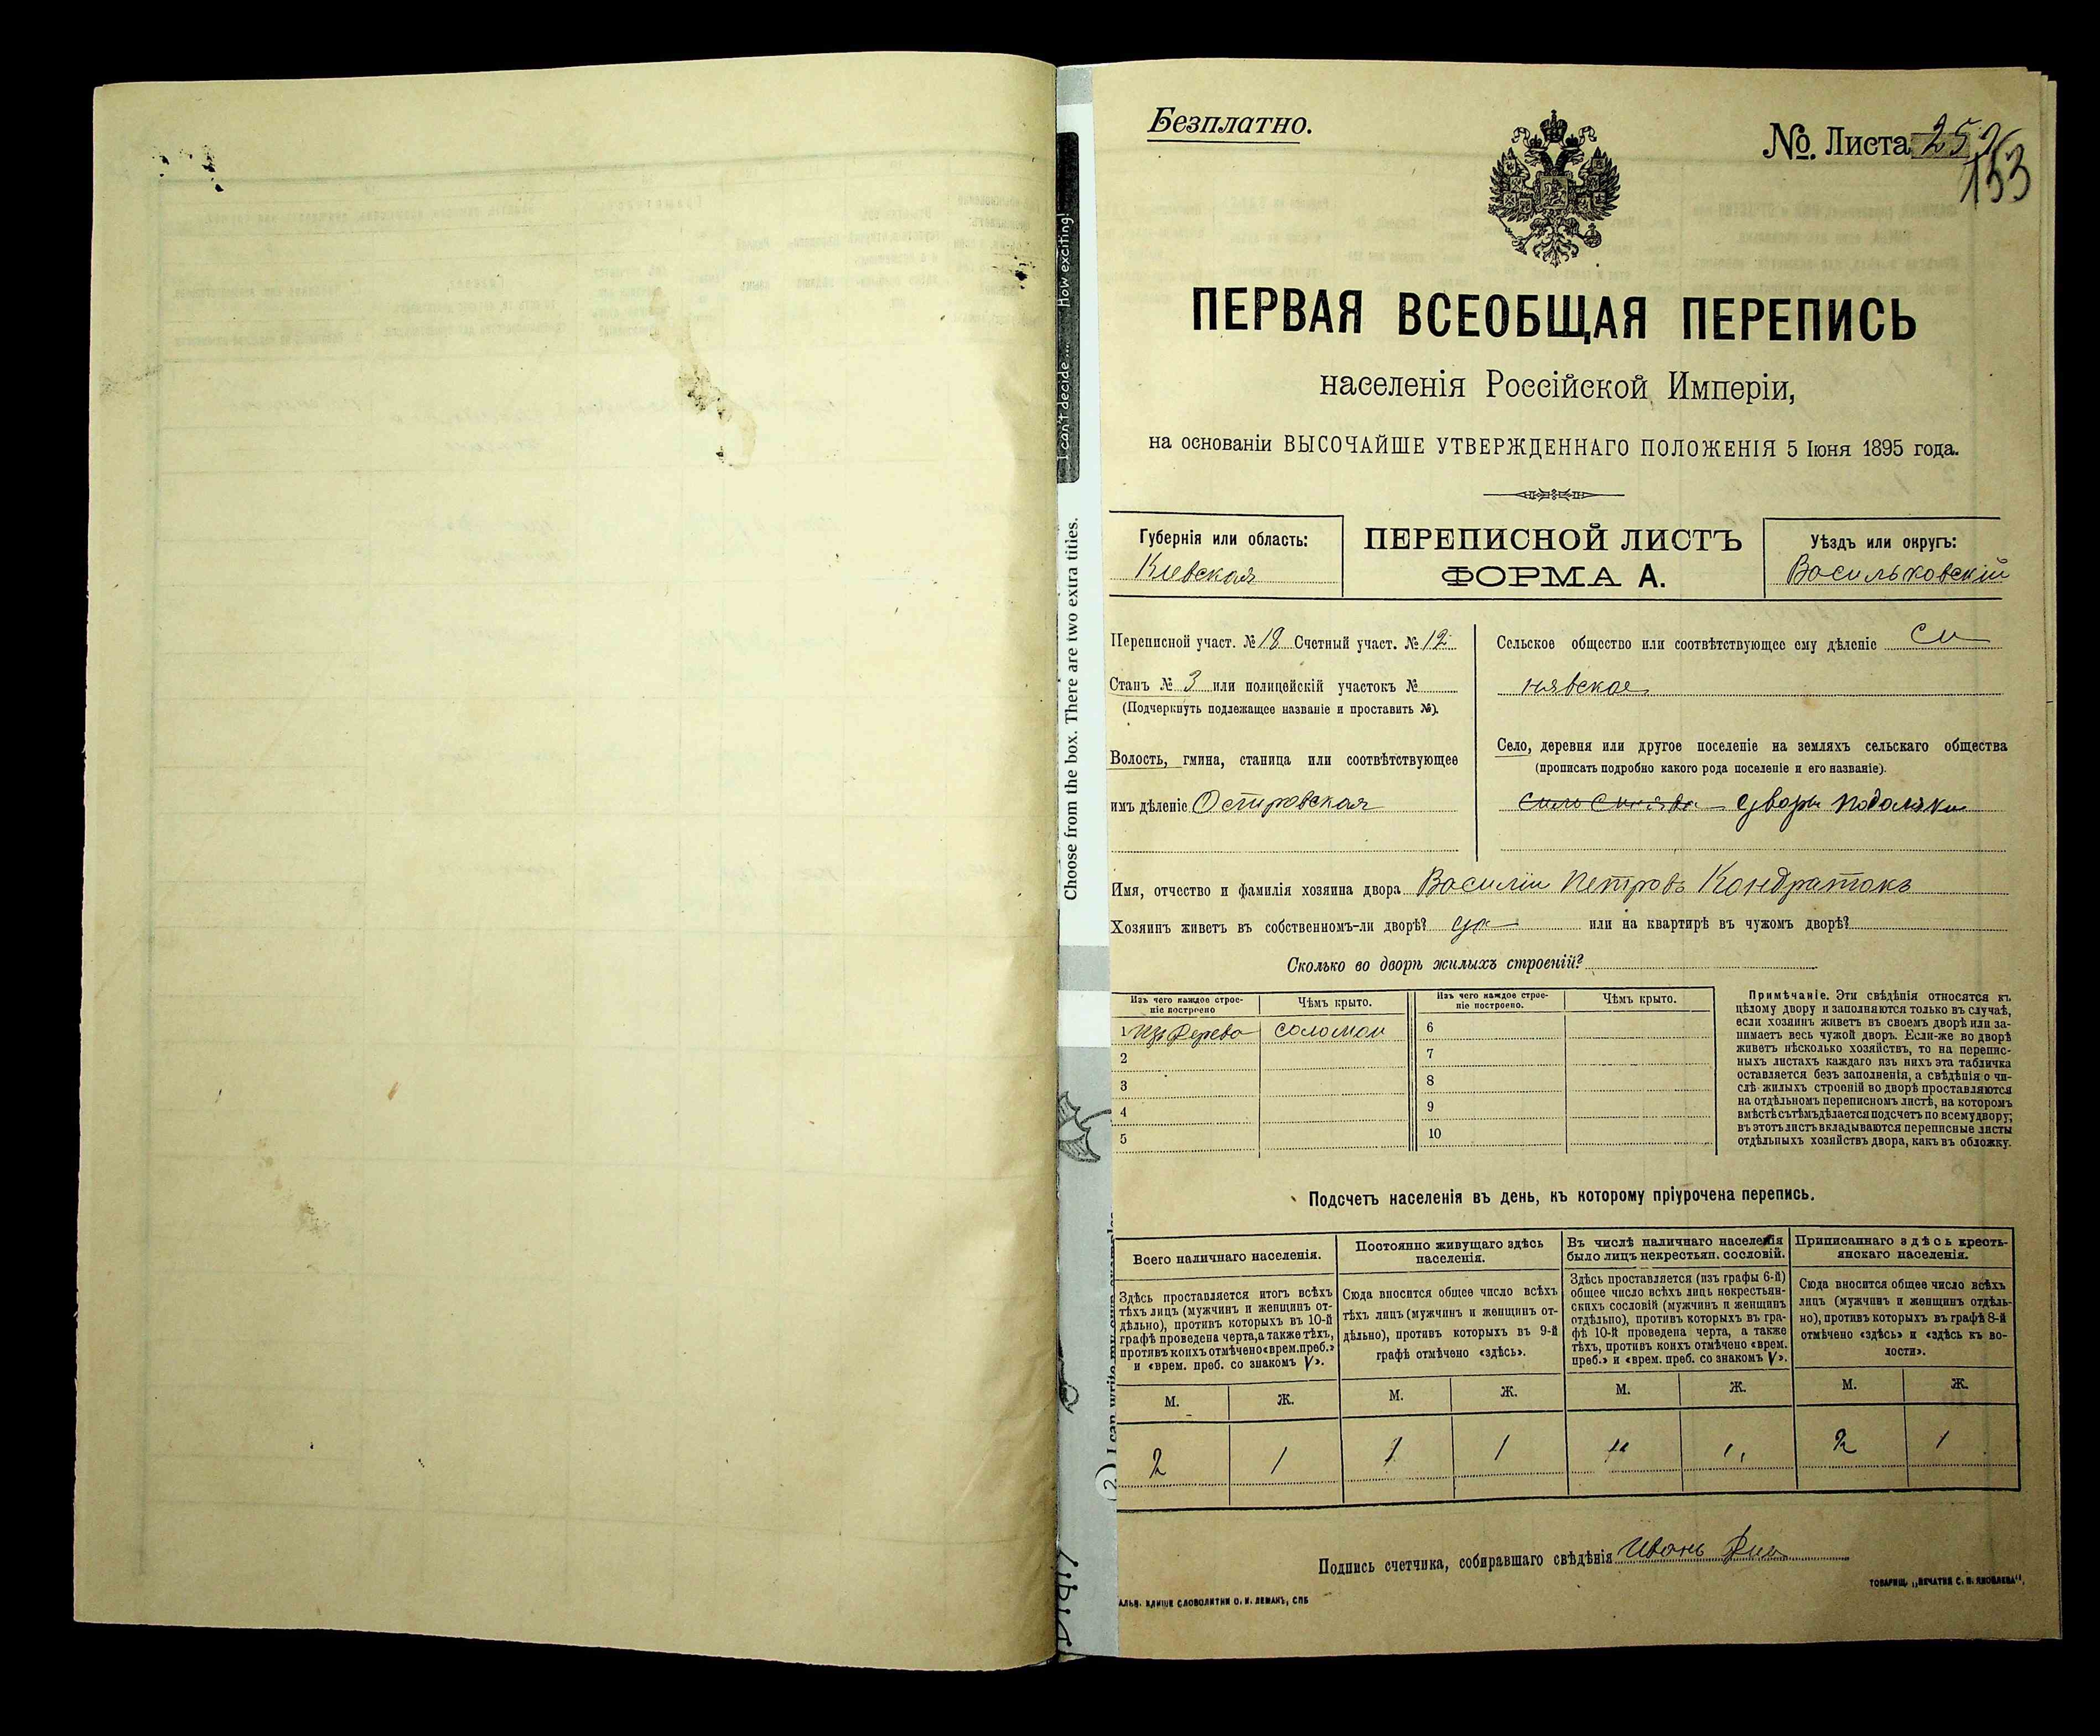 Безплатно.
No. Листа 25
153
ПЕРВАЯ ВСЕОБЩАЯ ПЕРЕПИСЬ
населенія Россійской Имперіи,
на основаніи ВЫСОЧАЙШЕ УТВЕРЖДЕННАГО ПОЛОЖЕНІЯ 5 Іюня 1895 года.
Губернія или область:
Кіевская
ПЕРЕПИСНОЙ ЛИСТЪ
ФОРМА А.
Уѣздъ или округъ:
Васильковскій
Переписной участ. № 18 Счетный участ. № 12
Станъ № 3 или полицейскій участокъ №
(Подчеркнуть подлежащее названіе и проставить №).
Волость, гмина, станица или соотвѣтствующее
имъ дѣленіе Островская
Сельское общество или соотвѣтствующее ему дѣленіе Си
нявское
Село, деревня или другое поселеніе на земляхъ сельскаго общества
(прописать подробно какого рода поселеніе и его названіе).
село Синява
Имя, отчество и фамилія хозяина двора Василій Петровъ Кондратокъ
Хозяинъ живетъ въ собственномъ-ли дворѣ? да или на квартирѣ въ чужомъ дворѣ?
Сколько во дворѣ жилыхъ строеній?
Изъ чего каждое строе-
ніе построено
Чѣмъ крыто.
Изъ чего каждое строе-
ніе построено.
Чѣмъ крыто.
1 Изъ дерева соломои
2
3
4
5
6
7
8
9
10
Примѣчаніе. Эти свѣдѣнія относятся къ
цѣлому двору и заполняются только въ случаѣ,
если хозяинъ живетъ въ своемъ дворѣ или за-
нимаетъ весь чужой дворъ. Если-же во дворѣ
живетъ нѣсколько хозяйствъ, то на перепис-
ныхъ листахъ каждаго изъ нихъ эта табличка
оставляется безъ заполненія, а свѣдѣнія о чи-
слѣ жилыхъ строеній во дворѣ проставляются
на отдѣльномъ переписномъ листѣ, на которомъ
вмѣстѣ съ тѣмъ дѣлается подсчетъ по всему двору;
въ этотъ листъ вкладываются переписные листы
отдѣльныхъ хозяйствъ двора, какъ въ обложку.
Подсчетъ населенія въ день, къ которому пріурочена перепись.
Всего наличнаго населенія.
Постоянно живущаго здѣсь
населенія.
Въ числѣ наличнаго населенія
было лицъ некрестьян. сословій.
Приписаннаго здѣсь кресть-
янскаго населенія.
Здѣсь проставляется итогъ всѣхъ
тѣхъ лицъ (мужчинъ и женщинъ от-
дѣльно), противъ которыхъ въ 10-й
графѣ проведена черта, а также тѣхъ,
противъ коихъ отмѣчено «врем. преб.»
и «врем. преб. со знакомъ V».
Сюда вносится общее число всѣхъ
тѣхъ лицъ (мужчинъ и женщинъ от-
дѣльно), противъ которыхъ въ 9-й
графѣ отмѣчено «здѣсь».
Здѣсь проставляется (изъ графы 6-й)
общее число всѣхъ лицъ некрестьян-
скихъ сословій (мужчинъ и женщинъ
отдѣльно), противъ которыхъ въ гра-
фѣ 10-й проведена черта, а также
тѣхъ, противъ коихъ отмѣчено «врем.
преб.» и «врем. преб. со знакомъ V».
Сюда вносится общее число всѣхъ
лицъ (мужчинъ и женщинъ отдѣль-
но), противъ которыхъ въ графѣ 8-й
отмѣчено «здѣсь» и «здѣсь къ во-
лости».
М. Ж. М. Ж. М. Ж. М. Ж.
2 1 1 1 " " 2 1
Подпись счетчика, собиравшаго свѣдѣнія Иванъ
АЛЬВ. КЛИШЕ СЛОВОЛИТНИ О. И. ЛЕМАНЪ, СПБ
ТОВАРИЩ. „ПЕЧАТНЯ С. П. ЯКОВЛЕВА“.
Choose from the box. There are two extra titles.
I can't decide ... How exciting!
2 I can write my own